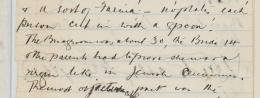 & a sort of Farina – no plate, each
person ate in with a spoon!
The Bridegroom was about 30, the Bride 14
the parents had to prove she was a
virgin like, in Jewish
The most part was the